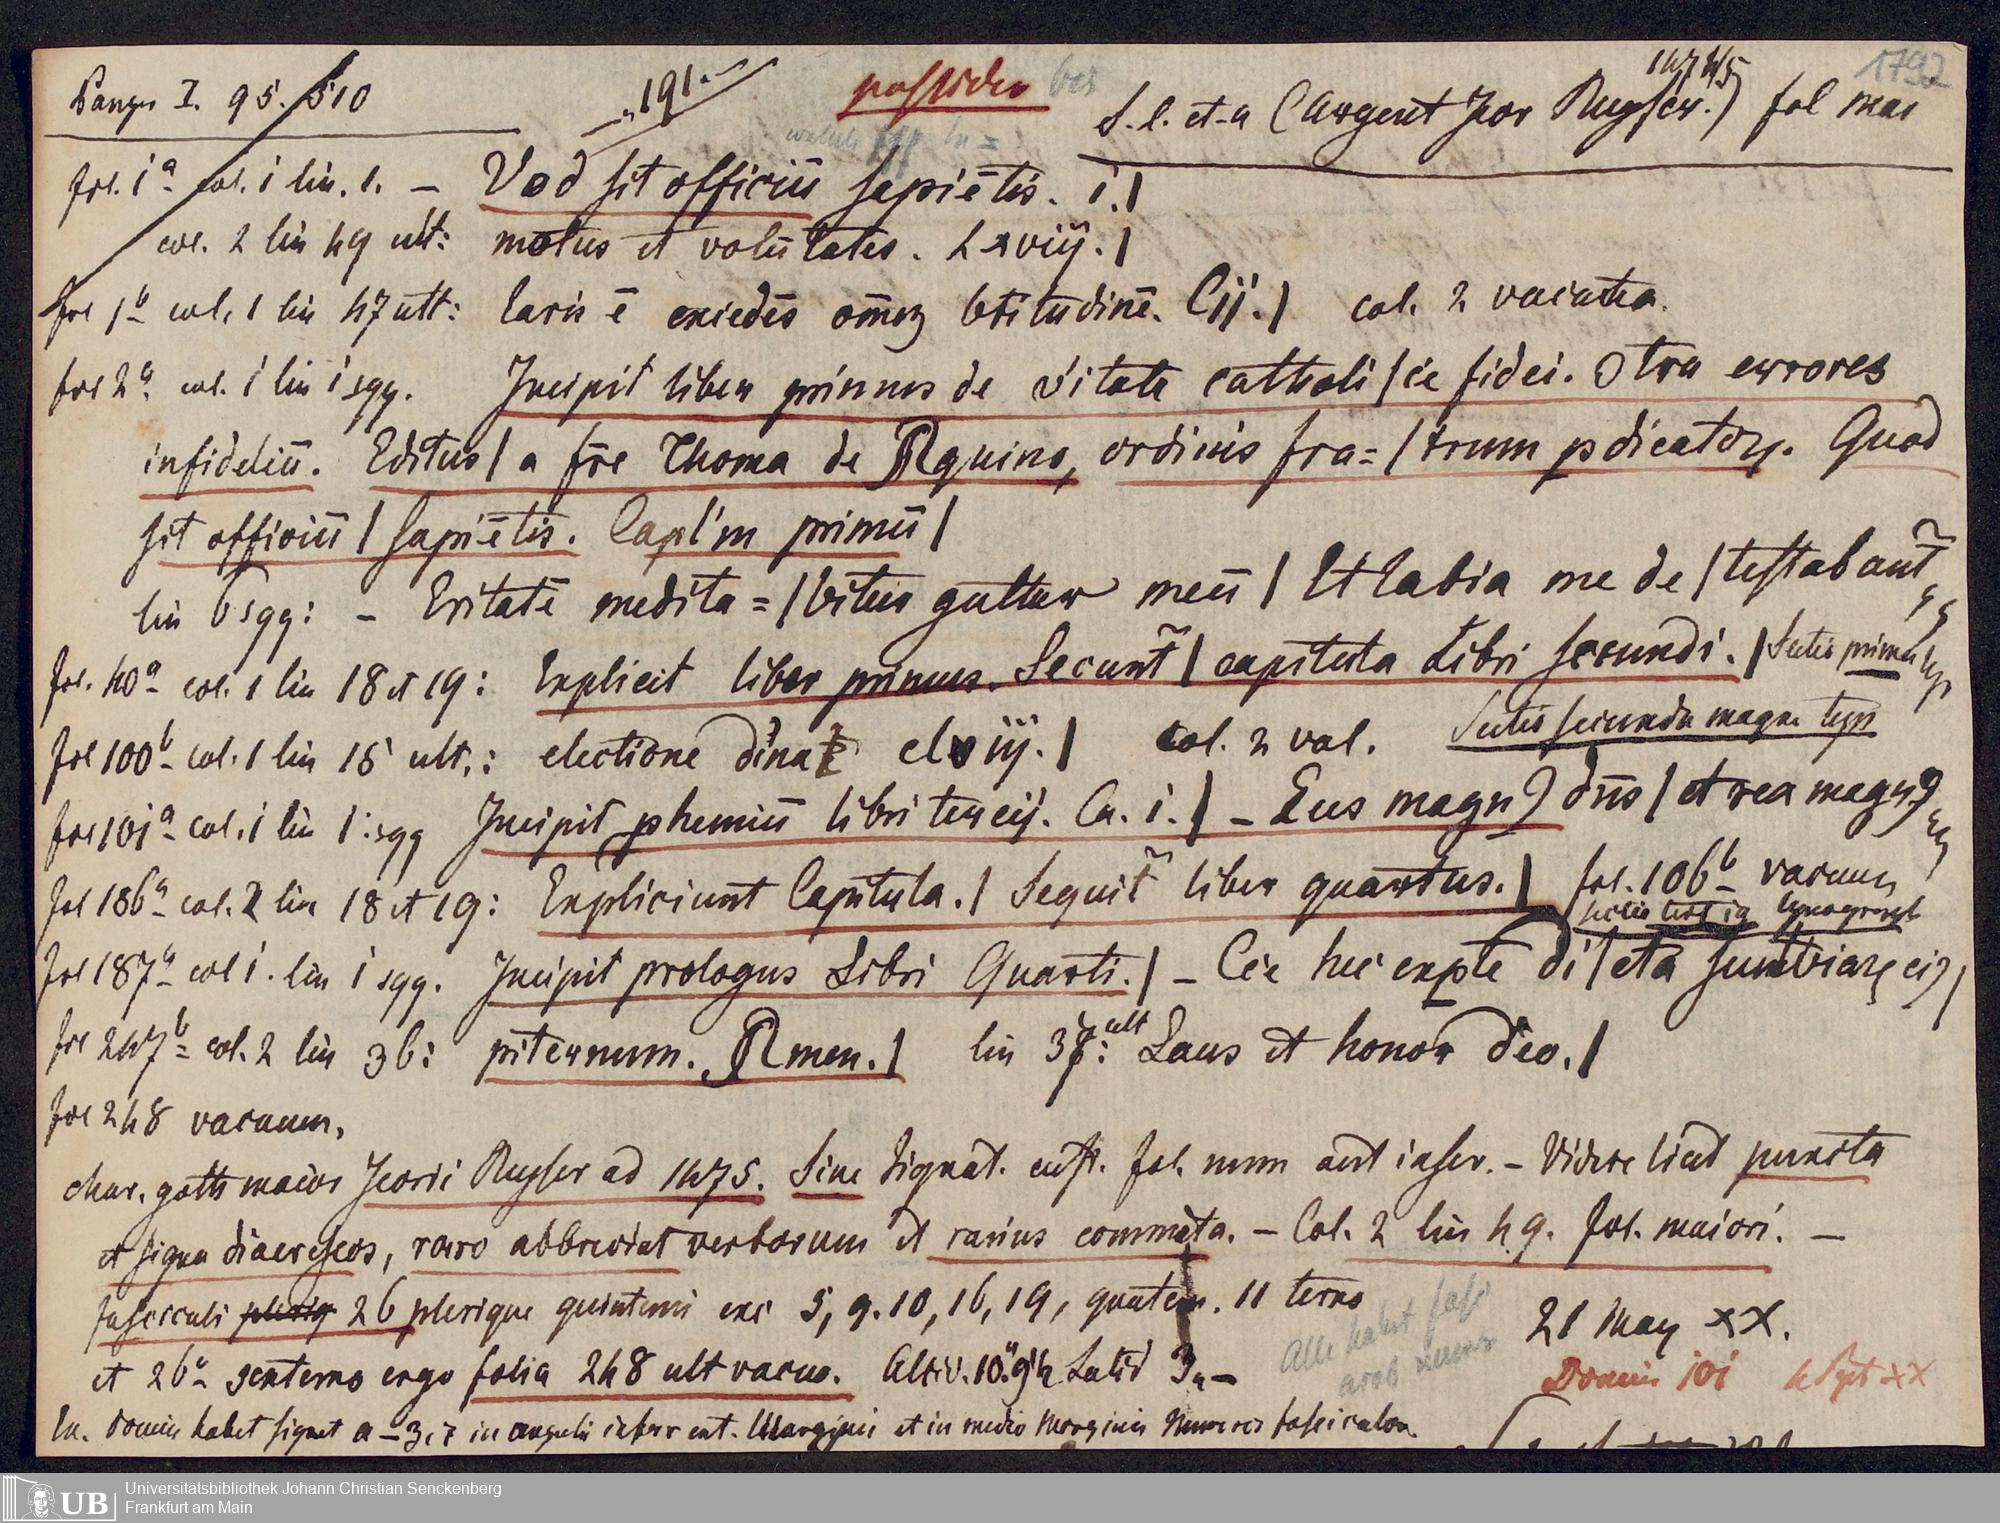 Panzer I. 95. 510 „191" possideo bis S. l. et a (Argent Jeor Ruyser.) 147 4/5 fol mai 1792
fol. 1a col. 1 lin. 1. — Vod sit officiū sapiētis. i.|
col. 2 lin 49 ult: motus et volūtates. Lxviij.|
fol 1b col. 1 lin 47 ult: laris ē excedēs om̄ez btitudinē. Cij.| col. 2 vacatia.
fol 2a. col. 1 lin 1 sqq. Incipit liber primus de v'itate catholi|ce fidei. Otra errores
infideliū. Editus| a fr̄e Thoma de Aquino, ordinis fra=|trum pdicatorꝝ. Quod
sit officiū| sapiētis. Capl'm primū|
lin 6 sqq: — Eritatē medita=|bitur guttur meū| Et labia me de|testabant̄
fol. 40a col. 1 lin 18 et 19: Explicit liber primus. Secunt̄| capitula Libri secundi.|
fol 100b col. 1 lin 15 ult.: electione dina clviij.| col. 2 vat. Sectio secunda magni typi
fol 101a col. 1 lin 1: sqq Incipit phemiū libri tercij. Ca. i.| — Eus magnꝰ dn̄s| et rex magnꝰ
fol 186a col. 2 lin 18 et 19: Expliciunt Capitula.| Sequit̄ liber quartus.| fol. 186b vacuum
sectio tertia typograph
fol 187a col 1. lin 1 sqq. Incipit prologus Libri Quarti.| — Cce hec expte di|cta sunt viarꝝ eiꝰ|
fol 247b col. 2 lin 36: piternum. Amen.| lin 37: ult Laus et honor deo.|
fol 248 vacuum.
char. goth maior Jeorii Ruyser ad 1475. Sine signat. cust. fol. num aut inscr. — Videre licet puncta
et signa diaereseos, raro abbreviat verborum et rarius commata. — Col. 2 lin 49. fol. maiori. —
fasciculi 26 plerique quinterni exc 5, 9. 10, 16, 19, quatern. 11 terno
et 26a sexterno ergo folia 248 ult vacuo. Altit. 10."9'" Latid 7"— Alle habet fasc 21 May xx.
arab numer Domin 101 4 Spt xx
Ex. Domin habet signet a — z, 7 in angulis inferr ext. Marginis et in medio Marginis Numeros fasciculor.
Universitätsbibliothek Johann Christian Senckenberg
UB Frankfurt am Main